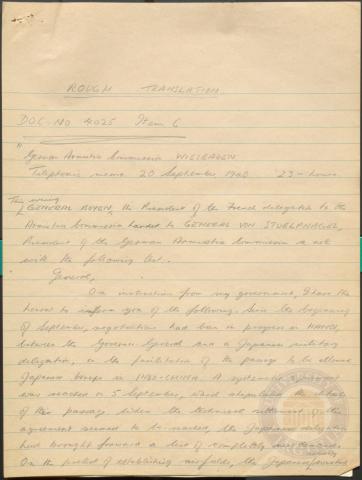 ROUGH TRANSLATION
DOC. NO 4025 Item 6
"German Armistice Commission WIESBADEN
Telephonic memo 20 September 1940 23- hours
This evening
GENERAL DOYEN, the President of the French delegation to the
Armistice Commission handed to GENERAL VON STUELPNAGEL,
President of the German Armistice Commission a note
with the following text.
General,
On instructions from my government, I have the
honour to inform you of the following. Since the beginning
of September, negotiations had been in progress in HANOI,
between the Governor-General and a Japanese military
delegation, on the facilitation of the passage to be allowed
Japanese troops in INDO-CHINA. A agreement
was reached on 5 September, which stipulated the
of this passage. When the technical of this
agreement seemed to be reached, the Japanese delegation
had brought forward a list of completely new demands.
On the pretext of establishing the Japanese